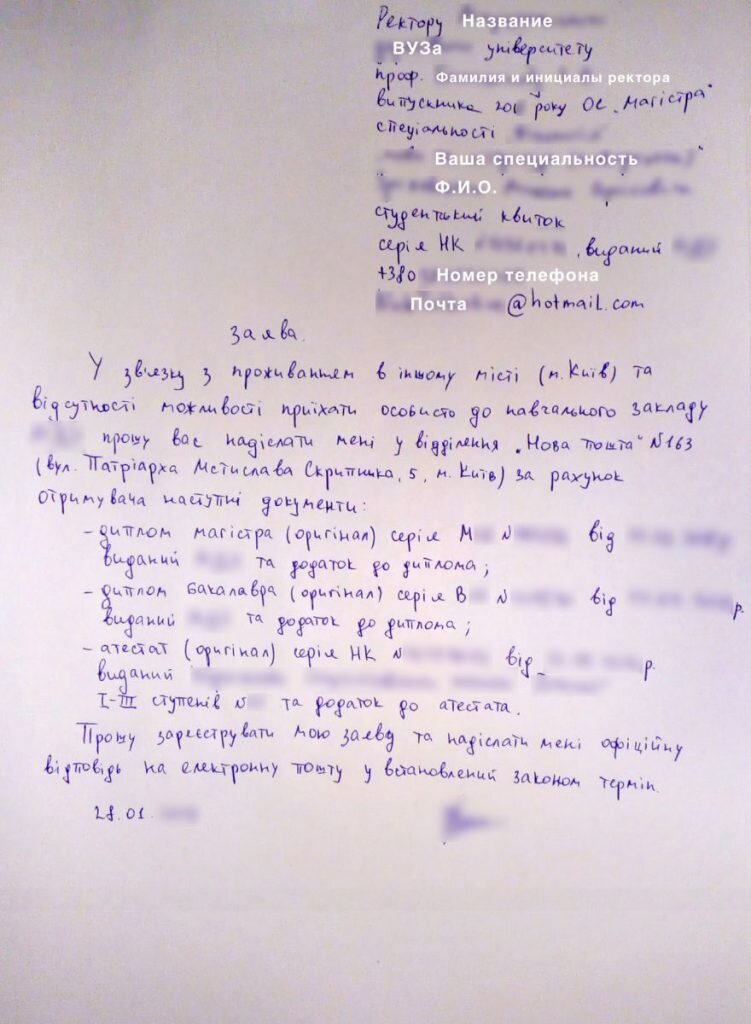 Ректору Название
ВУЗа університету
проф. Фамилия и инициалы ректора
випускника 20 року ОС „Магістра"
спеціальності
Ваша специальность
Ф.И.О.
студентський квиток
серія НК , виданий
+380 Номер телефона
Почта @hotmail.com
Заява.
У зв'язку з проживанням в іншому місті (м. Київ) та
відсутності можливості приїхати особисто до навчального закладу
прошу вас надіслати мені у відділення „Нова пошта" №163
(вул. Патріарха Мстислава Скрипника, 5, м. Київ) за рахунок
отримувача наступні документи:
- диплом магістра (оригінал) серія М N від
виданий та додаток до диплома;
- диплом бакалавра (оригінал) серія В N від р.
виданий та додаток до диплома;
- атестат (оригінал) серія НК N від р.
виданий
І-ІІІ ступенів N та додаток до атестата.
Прошу зареєструвати мою заяву та надіслати мені офіційну
відповідь на електронну пошту у встановлений законом термін.
28.01.